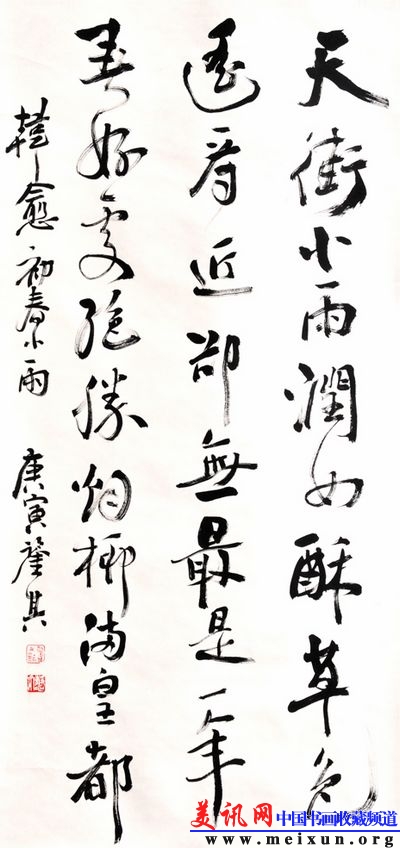 天街小雨潤如酥草色
遙看近卻無最是一年
春好處絕勝烟柳滿皇都
韓愈初春小雨 庚寅
美讯网 中国书画收藏频道
www.meixun.org